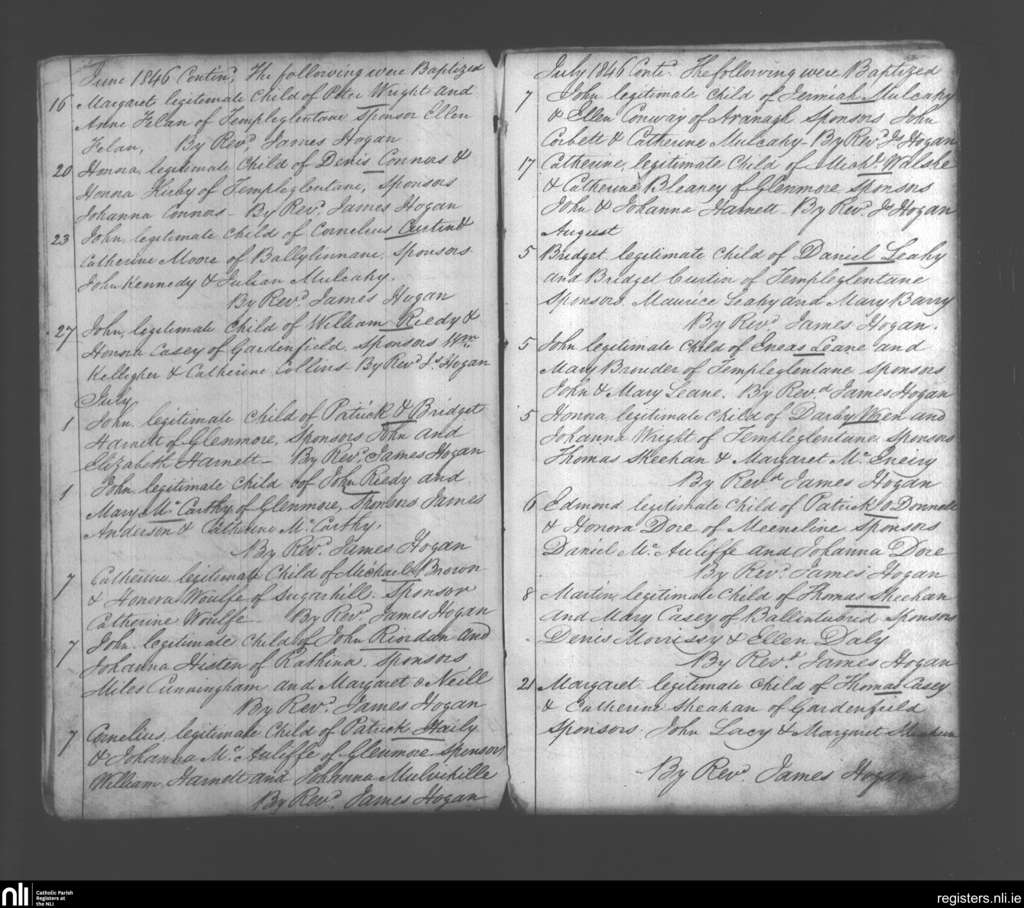 June 1846 Contind, The following were Baptized
16 Margaret legitimate Child of Peter Wright and
Anne Felan of Templeglentane Sponsor Ellen
Felan, By Revd. James Hogan
20 Honna, legitimate Child of Denis Connors &
Honna Kirby of Templeglentane, Sponsors
Johanna Connors - By Revd. James Hogan
23 John, legitimate Child of Cornelius Curtin &
Catherine Moore of Ballylinnane. Sponsors
John Kennedy & Julian Mulcahy.
By Revd. James Hogan
27 John, legitimate Child of William Reedy &
Honora Casey of Gardenfield. Sponsors Wm.
Kellegher & Catherine Collins By Revd. Js. Hogan
July,
1 John, legitimate Child of Patrick & Bridget
Harnett of Glenmore, Sponsors John and
Elizabeth Harnett - By Revd. James Hogan
1 John legitimate Child of John Reedy and
Mary McCarthy of Glenmore, Sponsors James
Anderson & Catherine McCarthy,
By Revd. James Hogan
7 Catherine legitimate Child of Michael Brown
& Honora Woulfe of Sugarhill. Sponsor
Catherine Woulfe By Revd. James Hogan
7 John. legitimate Child of John Riordan and
Johanna Histen of Rathina, Sponsors
Miles Cunningham and Margaret o Neill
By Revd. James Hogan
7 Cornelius, legitimate Child of Patrick Haily
& Johanna Mc Auliffe of Glenmore Sponsors
William Harnett and Johanna Mulvihille
By Revd. James Hogan
July 1846 Contd. The following were Baptized
7 John legitimate Child of Jermiah Mulcahy
& Ellen Conway of Aranagh Sponsors John
Corbett & Catherine Mulcahy - By Revd. Js Hogan
17 Catherine, legitimate Child of Michl. Walshe
& Catherine Bleaney of Glenmore Sponsors
John & Johanna Harnett - By Revd. Js Hogan
August
5 Bridget legitimate Child of Daniel Leahy
and Bridget Curtin of Templeglentane
Sponsors, Maurice Leahy and Mary Barry
By Revd. James Hogan.
5 John legitimate Child of Eneas Leane and
Mary Browder of Templeglentane Sponsors
John & Mary Leane. By Revd. James Hogan
5 Honna legitimate Child of Darby Wren and
Johanna Wright of Templeglentane Sponsors
Thomas Skeehan & Margaret Mc Eneiry
By Revd. James Hogan
6 Edmond legitimate Child of Patrick o Donnell
& Honora Dore of Meeneline Sponsors
Daniel Mc Auliffe and Johanna Dore
By Revd. James Hogan
8 Martin, legitimate Child of Thomas Skeehan
and Mary Casey of Ballintubrid Sponsors
Denis Morrissy & Ellen Daly
By Revd. James Hogan
21 Margaret legitimate Child of Thomas Casey
& Catherine Sheahan of Gardenfield
Sponsors John Lacy & Margaret
By Revd James Hogan
nli
Catholic Parish
Registers at
the NLI
registers.nli.ie